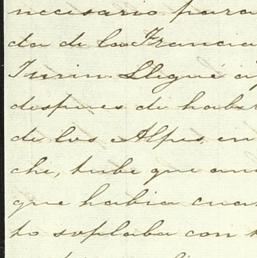 necesario para
da de la Francia
Turin. Llegué a
despues de haber
de los Alpes en
che, tube que
que habia
to soplaba con